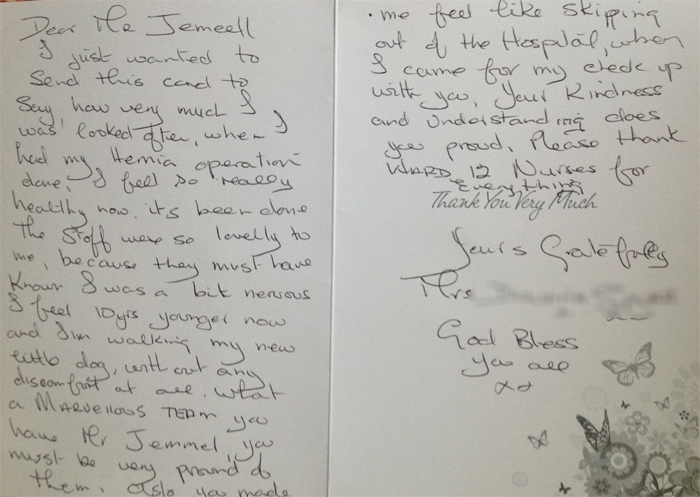 Dear Mr Jemeell
I just wanted to
Send this card to
Say, how very much I
was looked after, when I
had my Hernia operation
done, I feel so really
healthy now. its been done
The Staff were so lovelly to
me, because they must have
Known I was a bit nervous
I feel 10yrs younger now
and I'im walking my new
little dog, with out any
discomfort at all. What
a MARVELLOUS TEAM you
have Mr Jemmel, you
musst be very pround of
them. Aslo you made
. me feel like skipping
out of the Hospital, when
I came for my check up
with you, Your Kindness
and Understanding does
you proud, Please thank
WARD 12 Nurses for
everything
Thank You Very Much
Yours Gratefully
Mrs
God Bless
you all